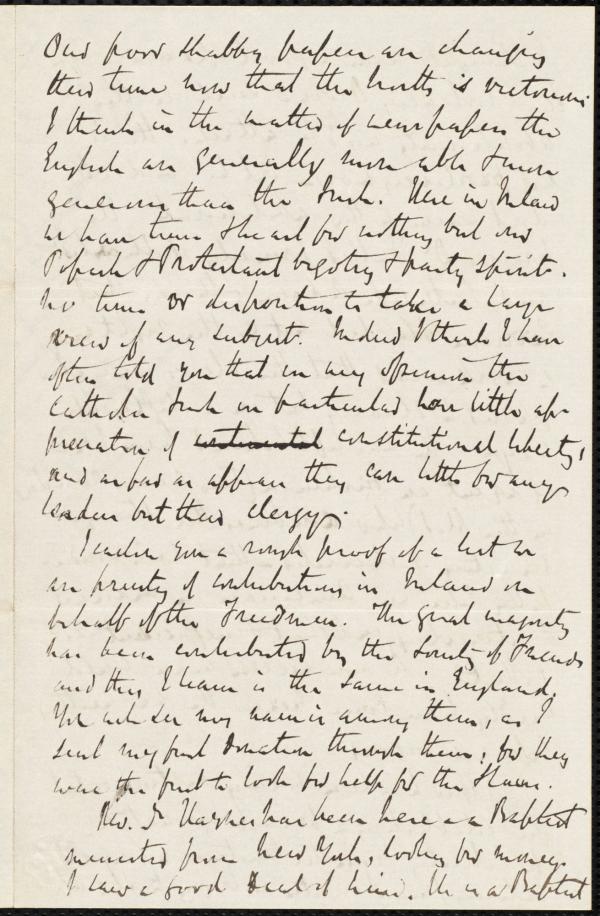 Our poor shabby papers are changing
their tune now that the North is victorious
I think in the matter of newspapers the
English are generally more able & more
generous than the Irish. Here in Ireland
we have time & heart for nothing but our
Popish & Protestant bigotry & party spirit.
no time or disposition to take a large
view of any subject. Indeed I think I have
often told you that in my opinion the
Catholic Irish in particular have little ap-
preciation of constitutional liberty,
and as far as appears they care little for any
leaders but their clergy.
I enclose you a rough proof of a list we
are printing of contributions in Ireland on
behalf of the Freedmen. The great majority
has been contributed by the Society of Friends
and this, I learn is the same in England.
You will see my name is among them, as I
sent my first donation through them; for they
were the first to look for help for the Slaves.
Rev. Dr has been here – a Baptist
minister from New York, looking for money.
I saw a good deal of him. He is a Baptist